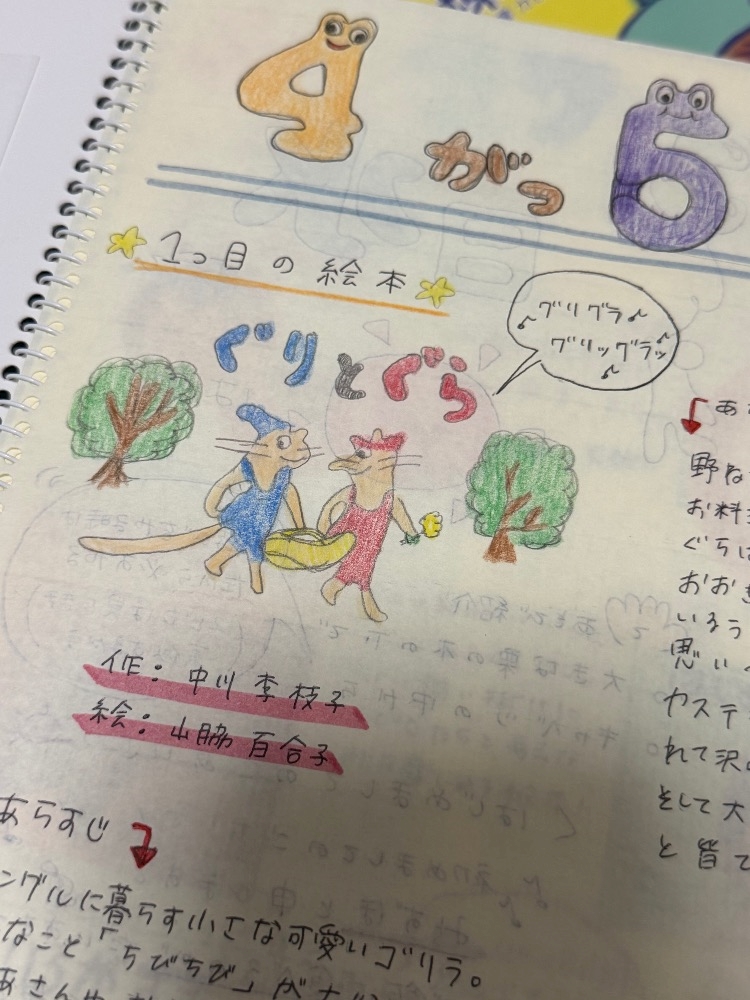 4 がつ 6
1つ目の絵本
ぐりとぐら
グリグラ
グリッグラッ
作：中川 李枝子
絵：山脇 百合子
あ
野ね
お料
ぐらは
おおき
いるう
思い
カステ
れて沢
そして大
と皆で
あらすじ
ングルに暮らす小さな可愛いゴリラ。
なこと「ちびちび」が
あさんや